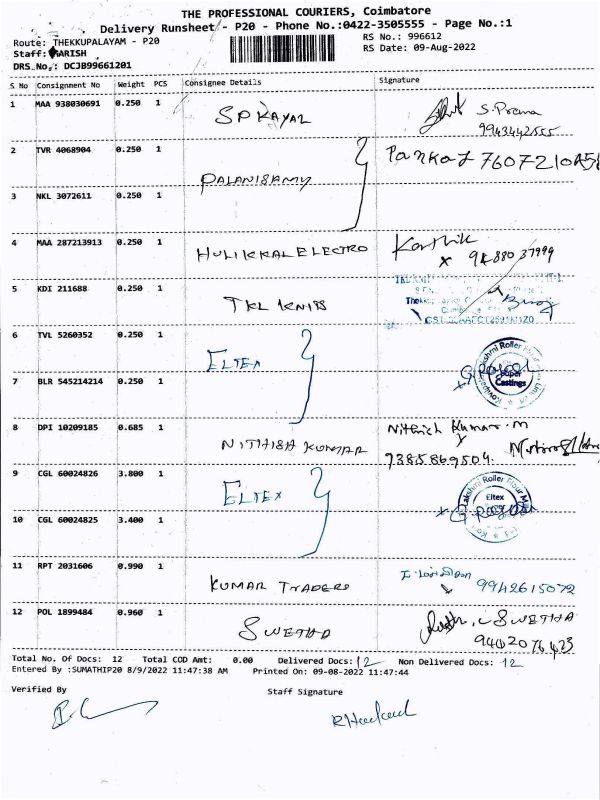 THE PROFESSIONAL COURIERS, Coimbatore
Delivery Runsheet - P20 - Phone No.:0422-3505555 - Page No.:1
Route: THEKKUPALAYAM - P20
RS No.: 996612
Staff: HARISH
RS Date: 09-Aug-2022
DRS No.: DCJB99661201
S No Consignment No Weight PCS Consignee Details Signature
1 MAA 938030691 0.250 1 SP KAYAL S. Prema
9943442555
2 TVR 4068904 0.250 1 PALANISAMY Pankaj
3 NKL 3072611 0.250 1
4 MAA 287213913 0.250 1 HULIKKAL ELECTRO Karthik
5 KDI 211688 0.250 1 TKL KNITS
6 TVL 5260352 0.250 1 ELTEX
7 BLR 545214214 0.250 1 Super Castings
8 DPI 10209185 0.685 1 NITHISH KUMAR Nithish Kumar. M
7385869504.
9 CGL 60024826 3.800 1 ELTEX Eltex
10 CGL 60024825 3.400 1
11 RPT 2031606 0.990 1 KUMAR TRADERS 9942615072
12 POL 1899484 0.960 1 SWETHA SWETHA
Total No. Of Docs: 12 Total COD Amt: 0.00 Delivered Docs: 12 Non Delivered Docs: 12
Entered By :SUMATHIP20 8/9/2022 11:47:38 AM Printed On: 09-08-2022 11:47:44
Verified By Staff Signature